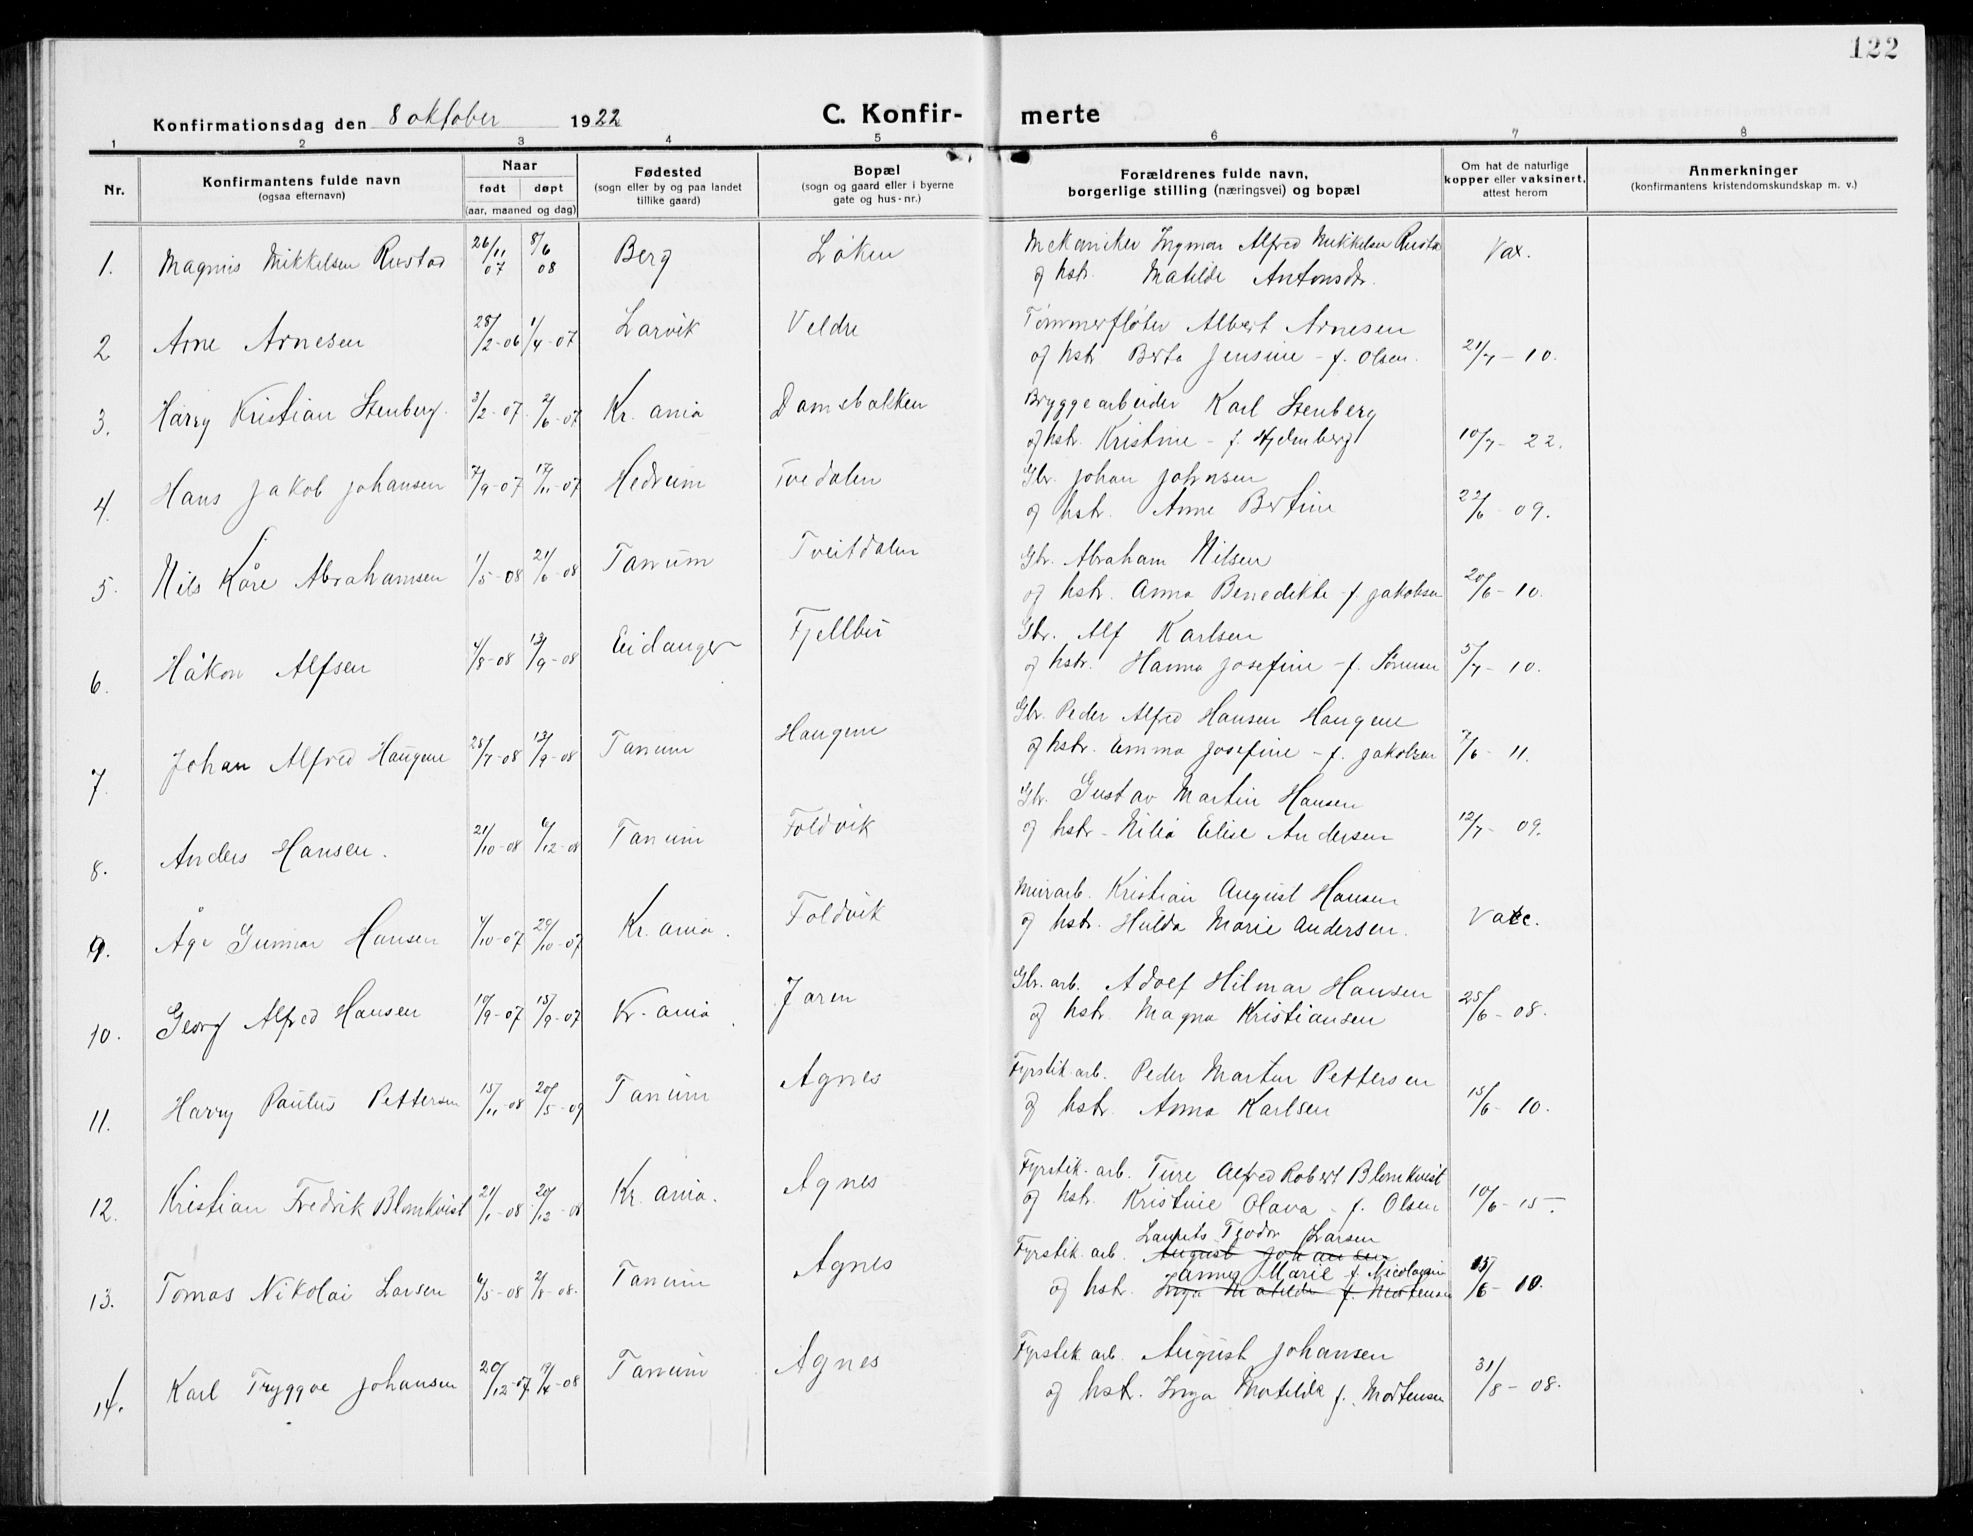 122
Konfirmationsdag den 8 oktober 1922 C. Konfir- merte
1 2 3 4 5 6 7 8
Nr. Konfirmantens fulde navn (ogsaa efternavn) Naar født døpt (aar, maaned og dag) Fødested (sogn eller by og paa landet tillike gaard) Bopæl (sogn og gaard eller i byerne gate og hus-nr.) Forældrenes fulde navn, borgerlige stilling (næringsvei) og bopæl Om hat de naturlige kopper eller vaksinert, attest herom Anmerkninger (konfirmantens kristendomskundskap m. v.)
1. Magnus Mikkelsen Rustad 26/11 07 8/6 08 Berg Løken Mekaniker Ingmar Alfred Mikkelsen Rustad Vax.
og hstr. Matilde Antonsdr.
2 Arne Arnesen 28/2-06 1/4-07 Larvik Veldre Tømmerfløter Albert Arnesen
og hstr. Berta Jensine - f. Olsen. 21/7-10.
3. Harry Kristian Stenberg. 3/2-07 2/6-07 Kr.ania Damsbakken Bryggearbeider Karl Stenberg
og hstr. Kristine - f. 10/7-22.
4. Hans Jakob Johansen 7/9-07 17/11-07 Hedrum Tvedalen Gbr. Johan Johnsen
og hstr. Anne Bertine 22/6 09.
5. Nils Kåre Abrahamsen 1/5-08 21/6-08 Tanum Tveitdalen Gbr. Abraham Nilsen
og hstr. Anna Benedikte f. Jakobsen 20/6-10.
6. Håkon Alfsen 4/8-08 13/9-08 Eidanger Fjellbu Gbr. Alf Karlsen
og hstr. Hanna Josefine - f. Sørensen 5/7-10.
7. Johan Alfred Haugene 28/7-08 13/9-08 Tanum Haugene Gbr. Peder Alfred Hansen Haugene
og hstr. Emma Josefine - f. Jakobsen 7/6-11.
8. Anders Hansen. 21/10-08 6/12-08 Tanum Foldvik Gbr. Gustav Martin Hansen
og hstr - Elise Andersen 12/7-09.
9. Åge Gunnar Hansen 4/10-07 29/10-07 Kr.ania. Foldvik Murarb. Kristian August Hansen
og hstr. Hulda Marie Andersen. Vacc.
10. Georg Alfred Hansen 10/9-07 15/9-07 Kr.ania. Jaren Gbr. arb. Adolf Hilmar Hansen
og hstr. Magna Kristiansen 25/6-08.
11. Harry Paulus Pettersen 15/11-08 20/5-09 Tanum Agnes Fyrstik-arb. Peder Martin Pettersen
og hstr. Anna Karlsen 15/6-10.
12. Kristian Fredrik Blomkvist 21/1-08 20/12-08 Kr.ania. Agnes Fyrstik-arb. Ture Alfred Robert Blomkvist
og hstr. Kristine Olava - f. Olsen 10/6-15.
Laurits Teodor Larsen
13. Tomas Nikolai Larsen 6/5-08 2/8-08. Tanum Agnes Fyrstik.arb. August Johansen
Anny Marie f. Nicolaysen
og hstr. Inga Matilde f. Mortensen 15/6-10.
14. Karl Tryggve Johansen 20/12-07 19/4-08 Tanum Agnes Fyrstik.arb. August Johansen
og hstr. Inga Matilde f. Mortensen 31/8-08.